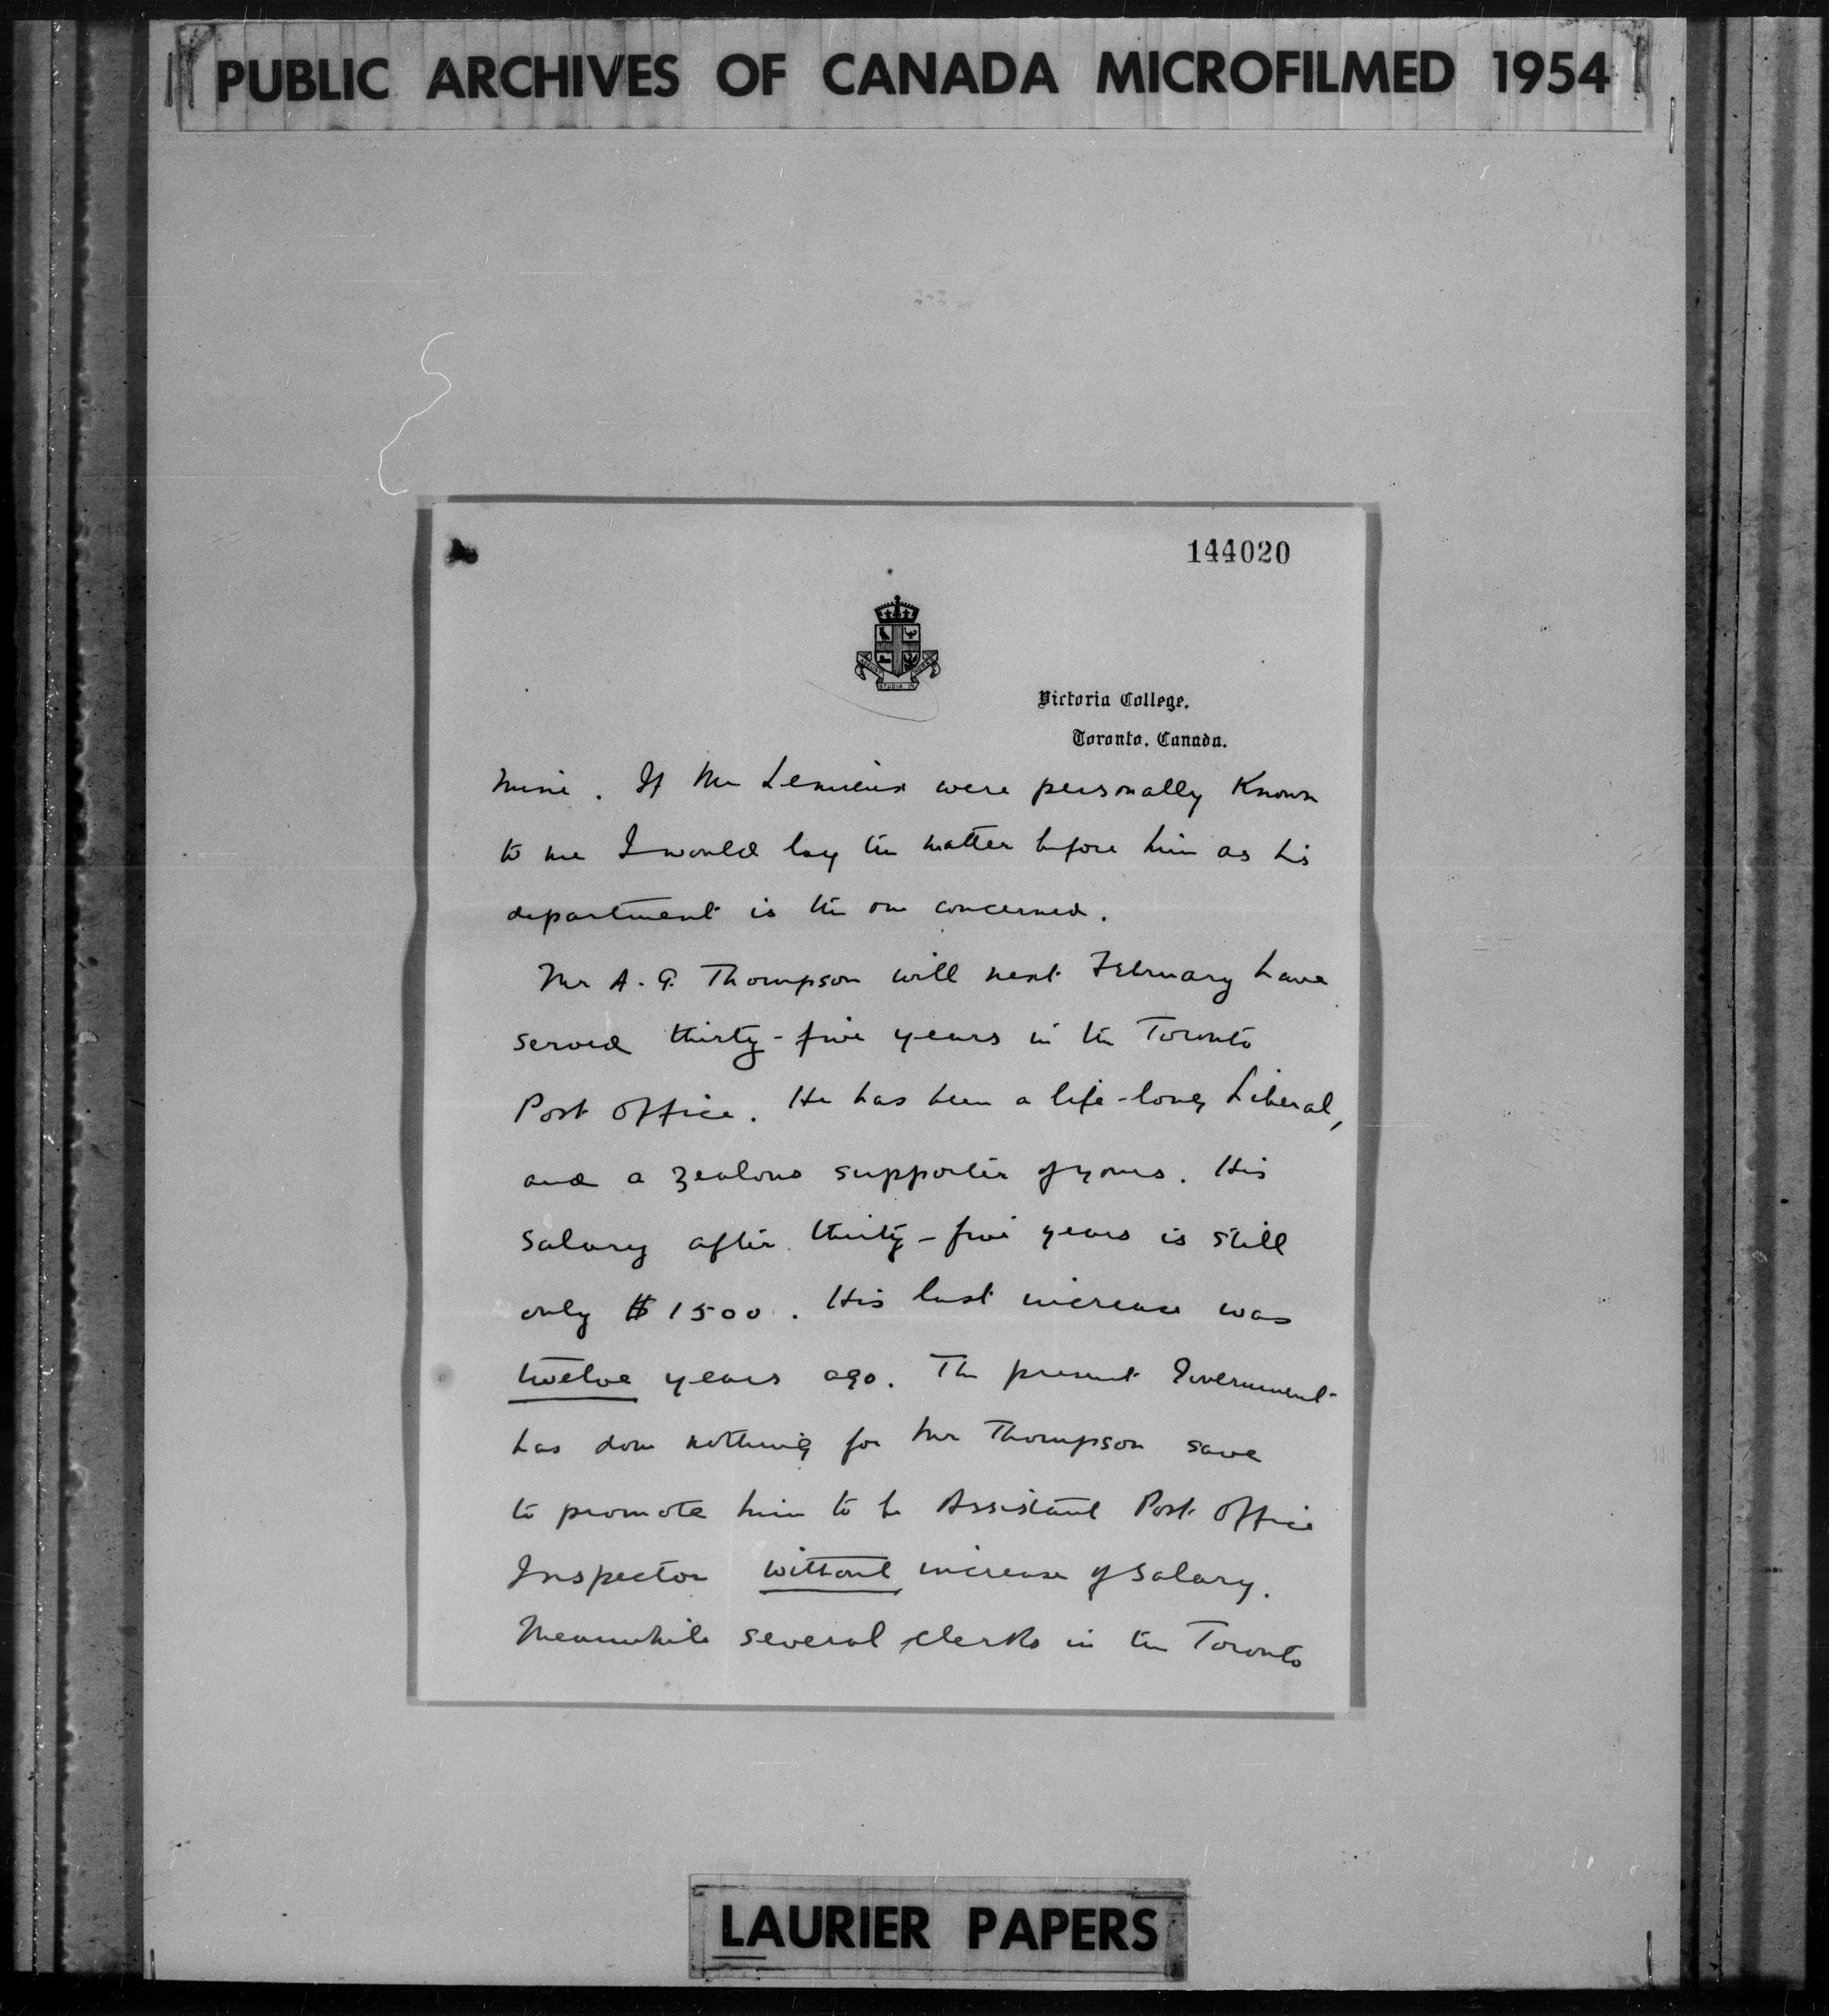 PUBLIC ARCHIVES OF CANADA MICROFILMED 1954
144020
STUDIA IN
Victoria College.
Toronto, Canada.
mine. If Mr Lemieux were personally known
to me I would lay the matter before him as his
department is the one concerned.
Mr A. G. Thompson will next February have
served thirty-five years in the Toronto
Post Office. He has been a life-long Liberal,
and a zealous supporter of yours. His
salary after thirty-five years is still
only $1500. His last increase was
twelve years ago. The present Government
has done nothing for Mr Thompson save
to promote him to be Assistant Post Office
Inspector without increase of salary.
Meanwhile several clerks in the Toronto
LAURIER PAPERS